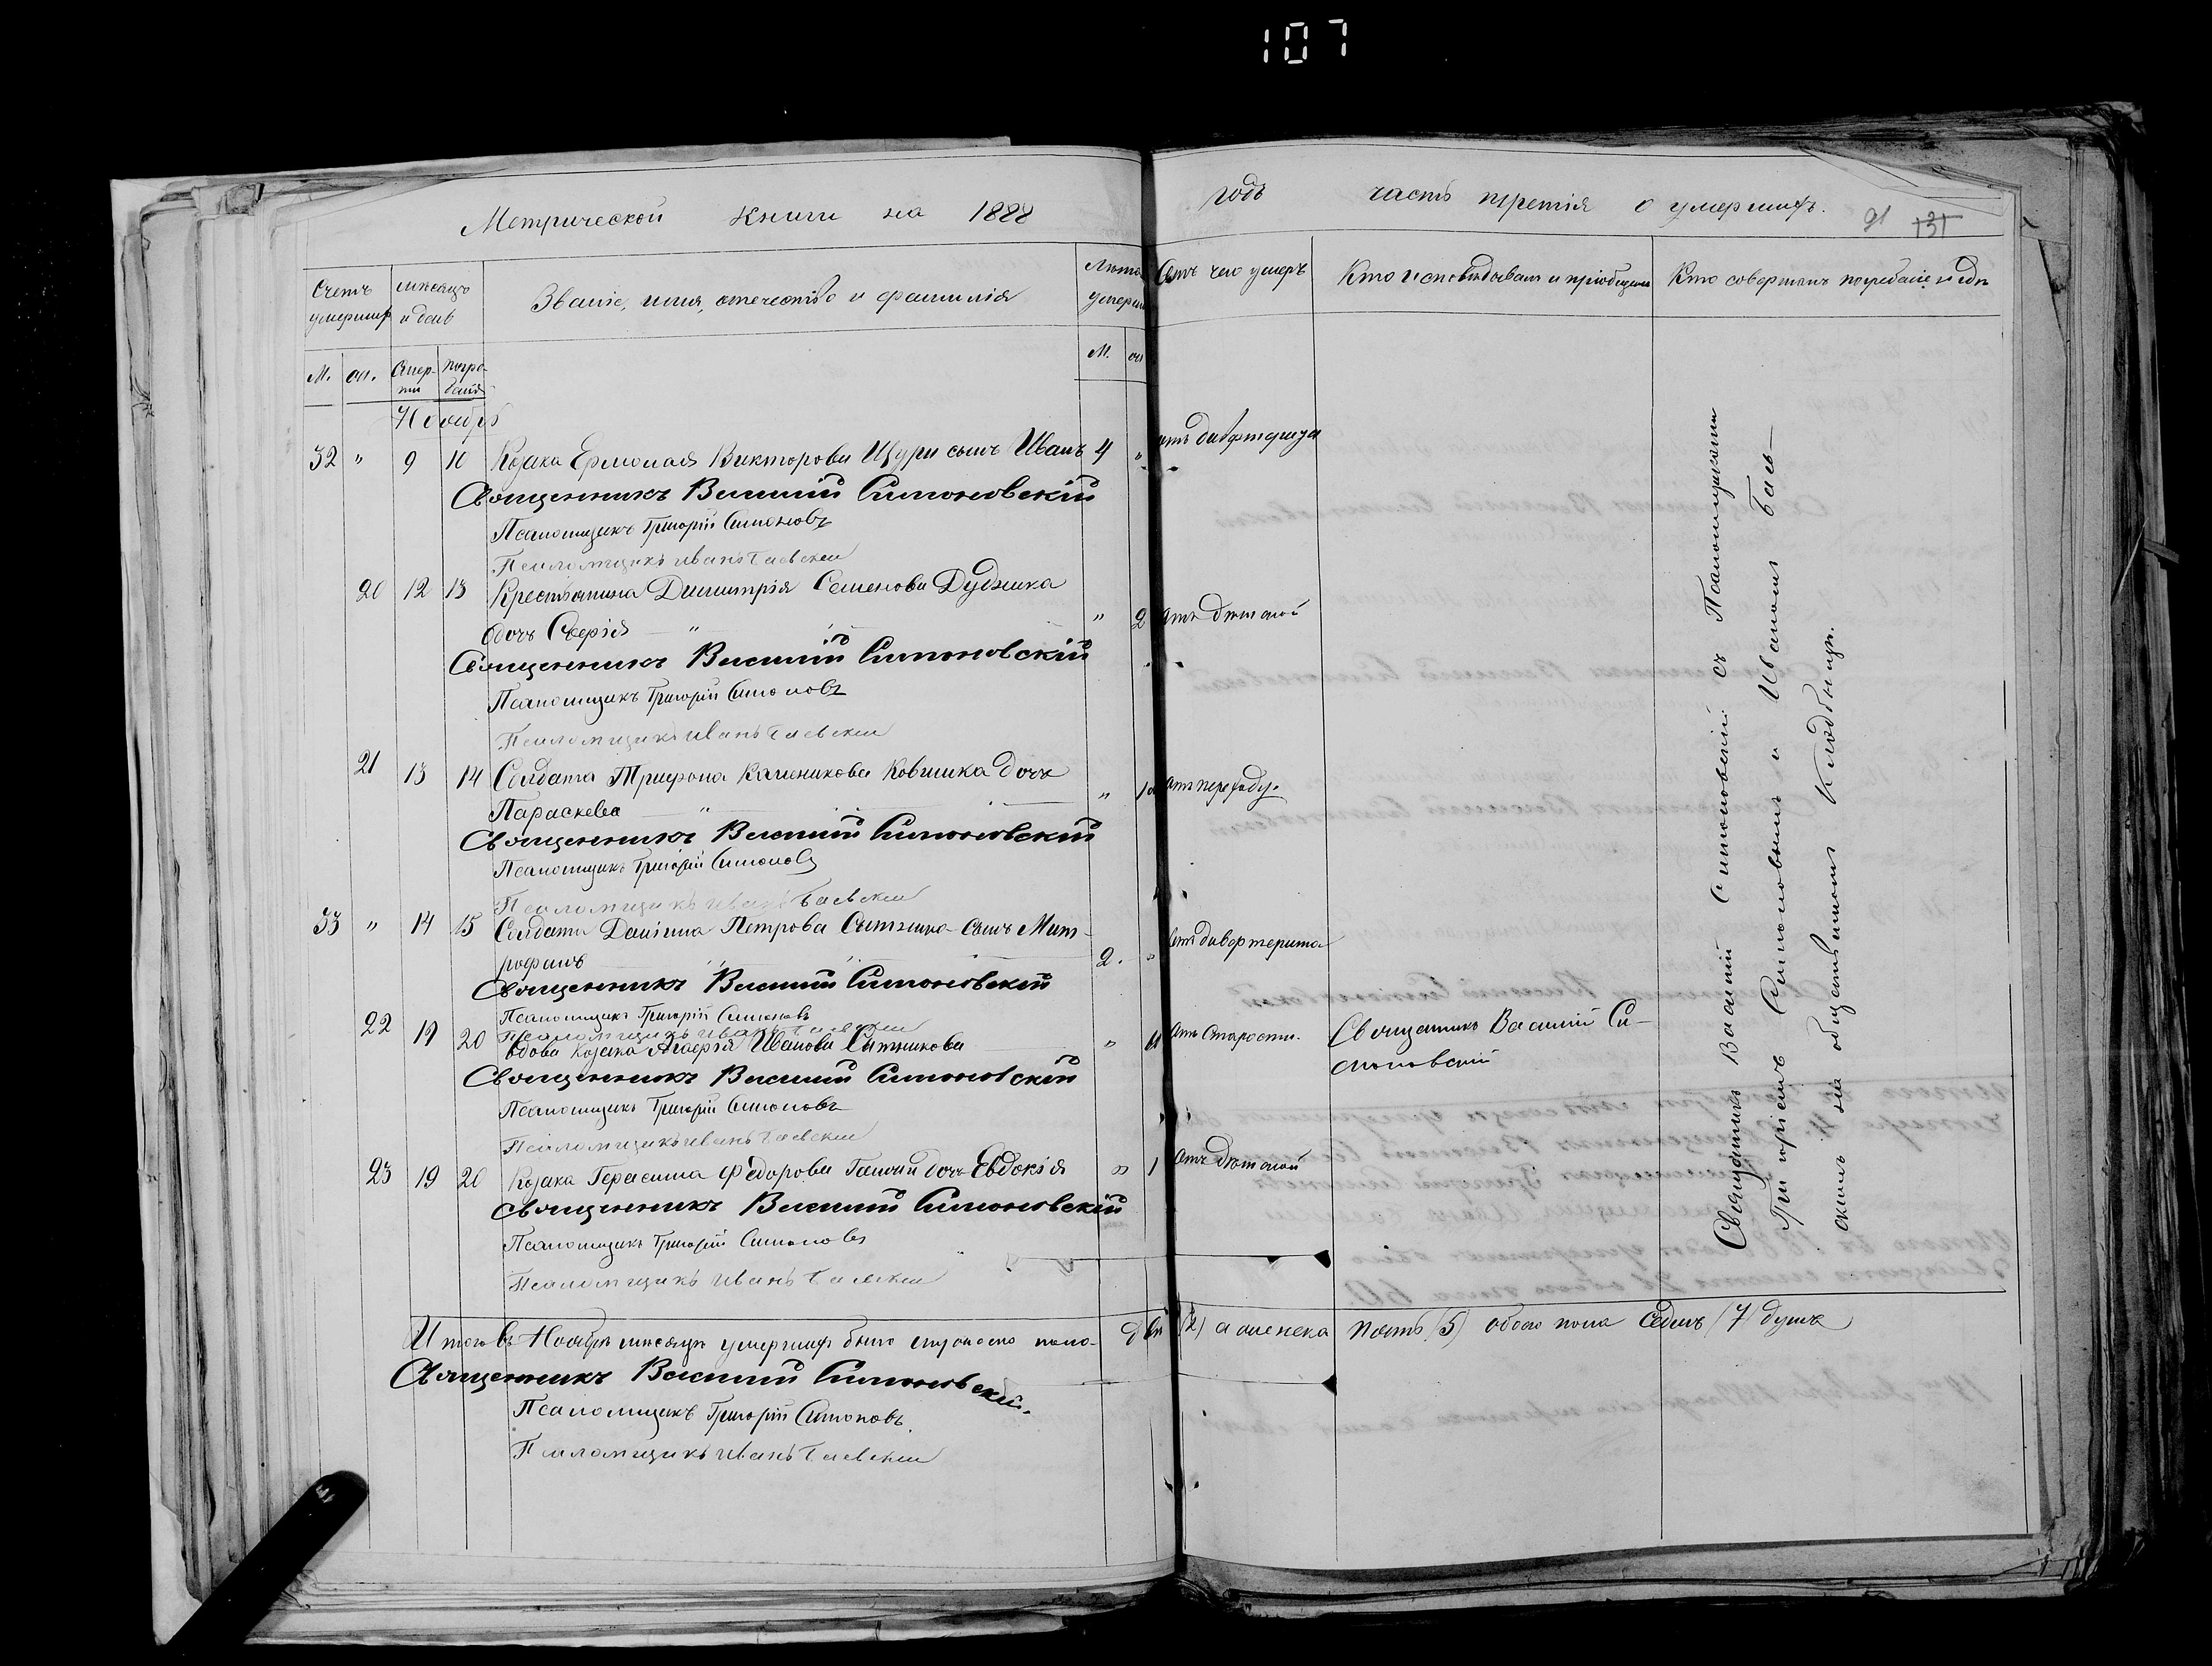 107
Метрической книги на 1888
годъ часть третія о умершихъ.
91 131
Счетъ умершихъ
Мѣсяцъ и день
Званіе, имя, отечество и фамилія
Лѣта умерш
Отъ чего умеръ
Кто исповѣдывалъ и пріобщалъ
Кто совершалъ погребаніе и гдѣ
М. Ж. Смерти Погребанія
М. Ж.
Ноябрь
32 " 9 10 Козака Ермолая Викторова Щури сынъ Иванъ 4 " отъ дифтерита
Священникъ Василій Симоновскій
Псаломщикъ Григорій Симоновъ
Псаломщикъ Иванъ Баевскій
20 12 13 Крестьянина Димитрія Семенова Дудника
дочь " " 2 отъ дѣтской
Священникъ Василій Симоновскій
Псаломщикъ Григорій Симоновъ
Псаломщикъ Иванъ Баевскій
21 13 14 Солдата Трифона Калиникова Ковшика дочь
Параскева " " отъ переходу.
Священникъ Василій Симоновскій
Псаломщикъ Григорій Симоновъ
Псаломщикъ Иванъ Баевскій
33 " 14 15 Солдата Даніила Петрова Сытника сынъ Мит-
рофанъ 2. " отъ дифтерита
Священникъ Василій Симоновскій
Псаломщикъ Григорій Симоновъ
Псаломщикъ Иванъ Баевскій
22 19 20 Вдова козака Агафія Иванова Сытникова " отъ старости. Священникъ Василій Си-
моновскій
Священникъ Василій Симоновскій
Псаломщикъ Григорій Симоновъ
Псаломщикъ Иванъ Баевскій
23 19 20 Козака Герасима Федорова дочь Евдокія " 1 отъ дѣтской
Священникъ Василій Симоновскій
Псаломщикъ Григорій Симоновъ
Псаломщикъ Иванъ Баевскій
Итого въ Ноябрѣ мѣсяцѣ умершихъ было мужеска пола два (2) а женска пять (5) обоего пола седмь (7) душъ
Священникъ Василій Симоновскій.
Псаломщикъ Григорій Симоновъ.
Псаломщикъ Иванъ Баевскій
Священникъ Василій Симоновскій съ Псаломщиками
Григоріемъ Симоновымъ и Иваномъ Баев-
скимъ на общественномъ кладбищѣ.